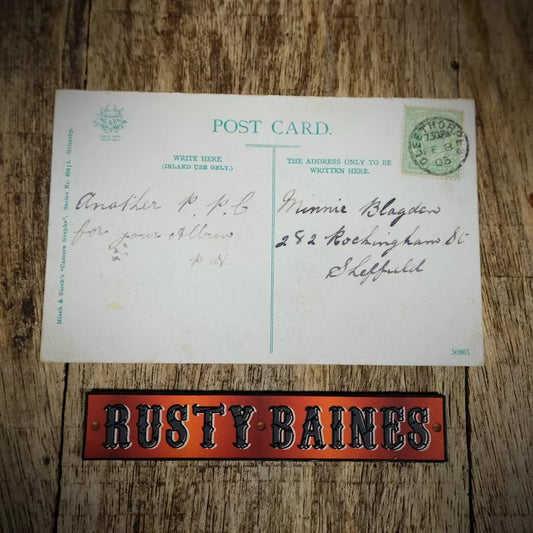 POST CARD.
WRITE HERE
(INLAND USE ONLY.)
THE ADDRESS ONLY TO BE
WRITTEN HERE.
Another P. P. C
for your Album
Minnie Blagden
282 Rockingham St
Sheffield
CLEETHORPES
7.30PM
FE 8
05
Misch & Stock's "Camera Graphs". Series No. Grimsby.
50865
RUSTY BAINES